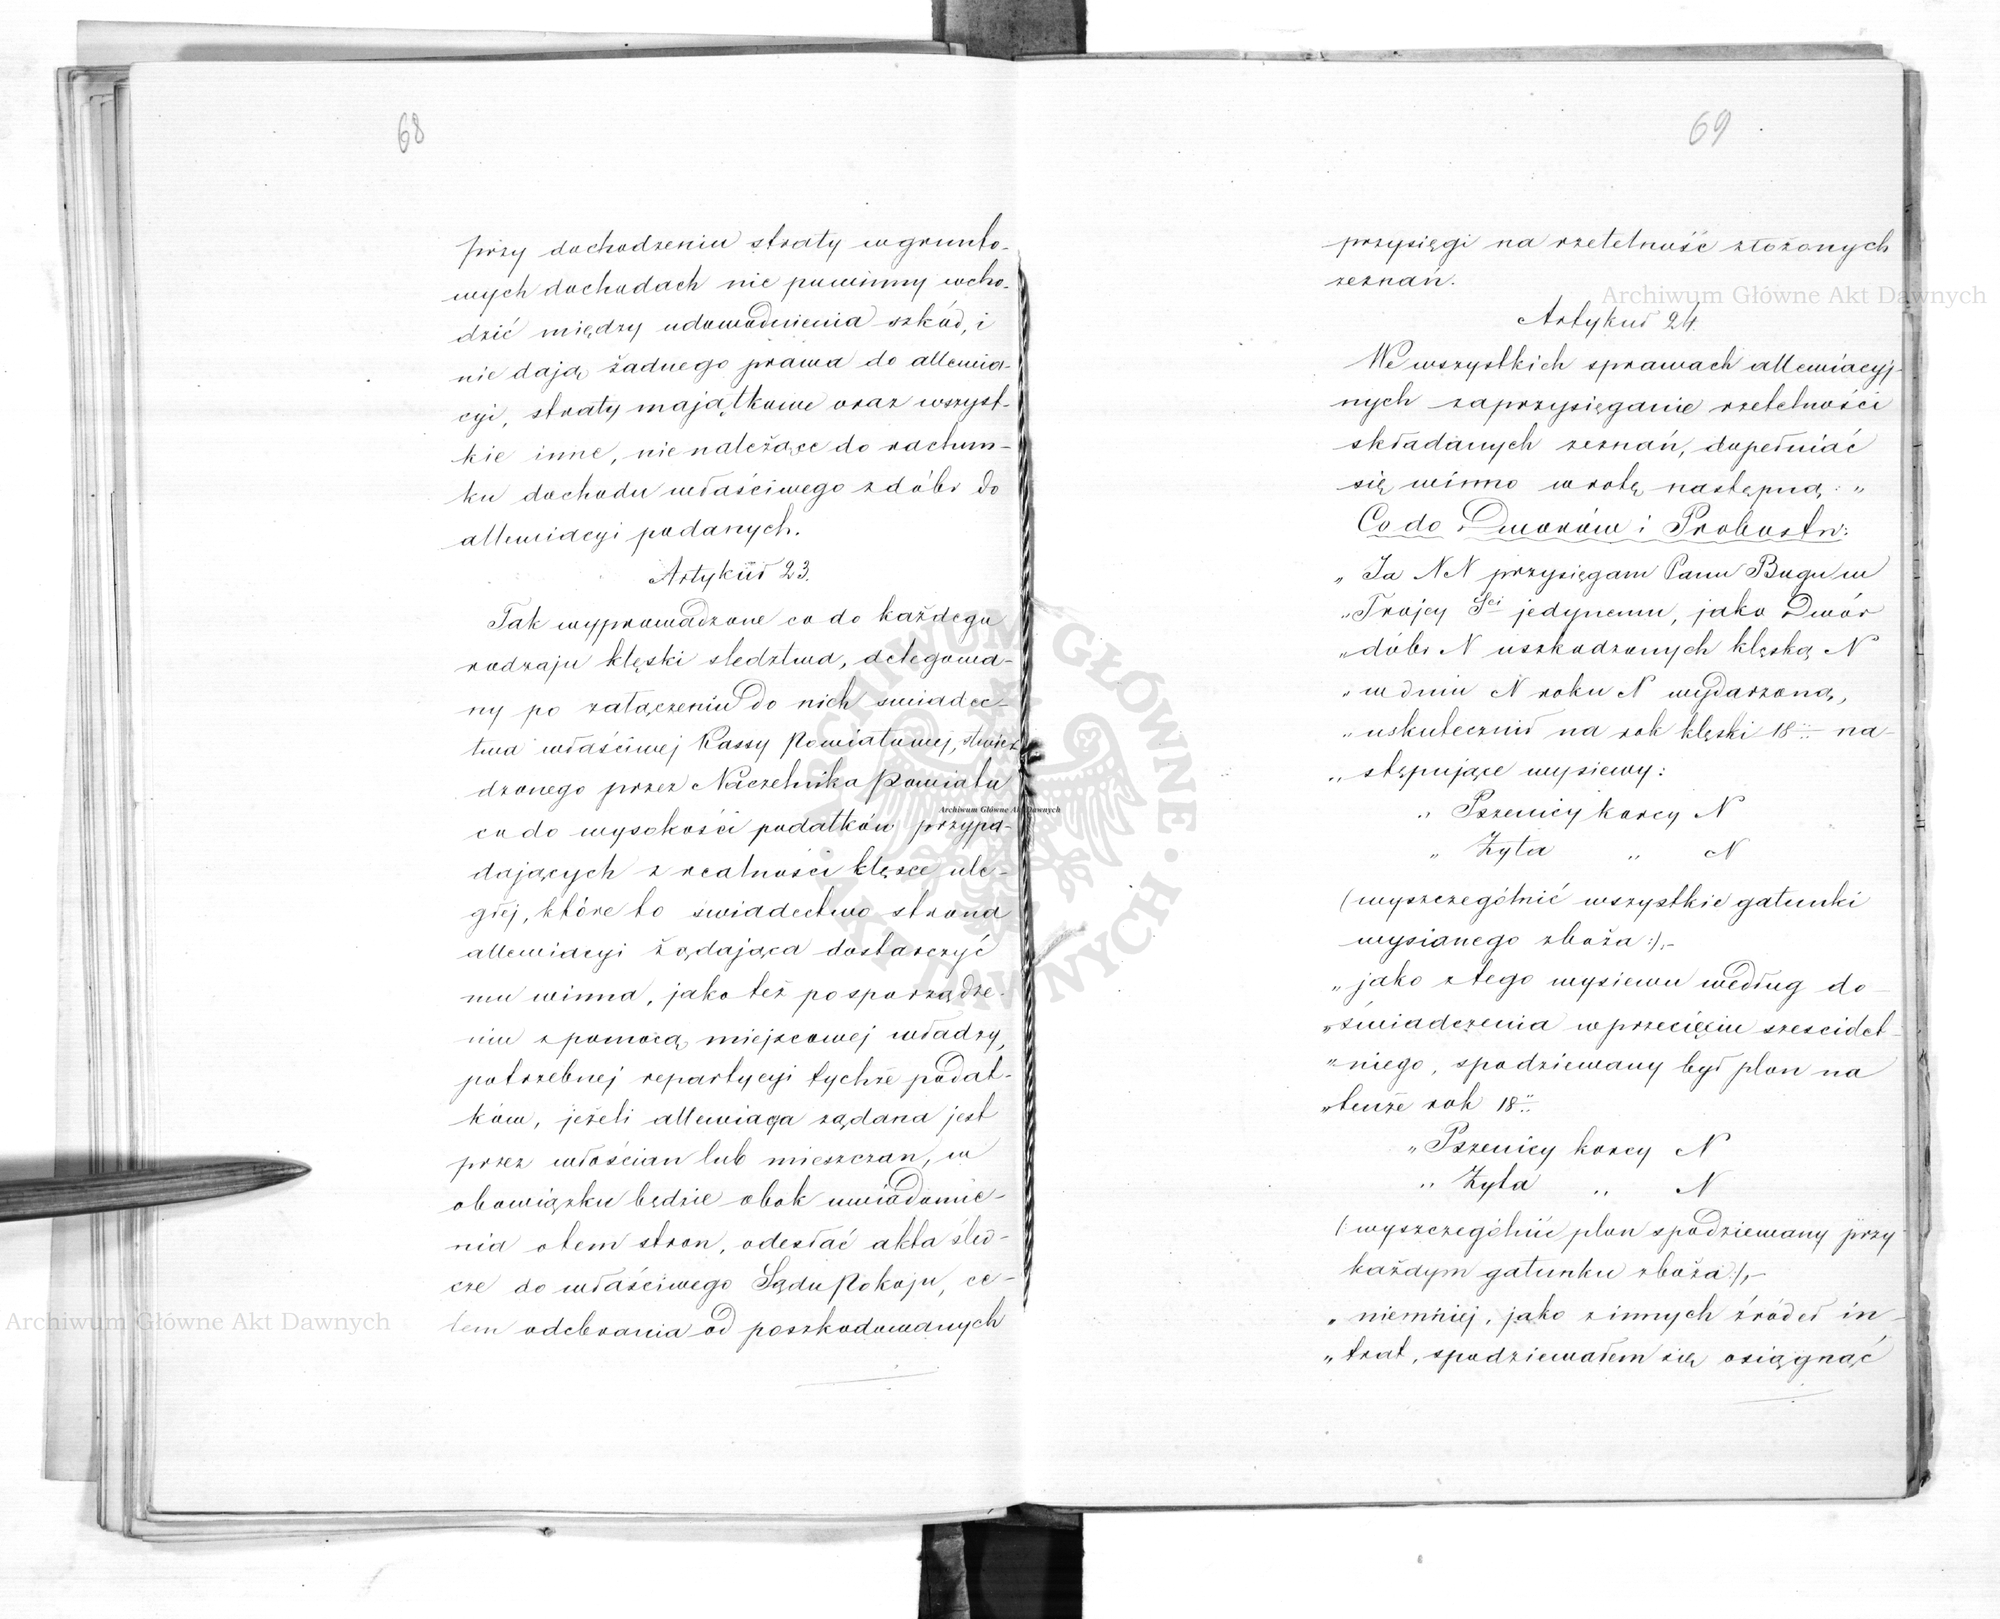 68
przy dochodzeniu straty w grunto-
wych dochodach nie powinny wcho-
dzić między udowodnienia szkód, i
nie dają żadnego prawa do allewia-
cyi, straty majątkowe oraz wszyst-
kie inne, nie należące do rachun-
ku dochodu właściwego z dóbr do
allewiacyi podanych.
Artykuł 23.
Tak wyprowadzone co do każdego
rodzaju klęski sledztwa, delegowa-
ny po załączeniu do nich swiadec-
twa właściwej Kassy Powiatowej, stwier-
dzonego przez Naczelnika Powiatu
co do wysokości podatków przypa-
dających z realności klęsce ule-
głej, które to świadectwo strona
allewiacyi żądająca dostarczyć
mu winna, jako też po sporządze-
niu z pomocą miejscowej władzy,
potrzebnej repartycyi tychże podat-
ków, jeżeli allewiacya żądana jest
przez włościan lub mieszczan, w
obowiązku będzie obok uwiadomie-
nia otem stron, odesłać akta śled-
cze do właściwego Sądu Pokoju, ce-
lem odebrania od poszkodowanych
69
przysięgi na rzetelność złożonych
zeznań.
Artykuł 24.
We wszystkich sprawach allewiacyj-
nych zaprzysięganie rzetelności
składanych zeznań, dopełniać
się winno w rotę następną: „
Co do Dworów i Probostw:
„ Ja N N przysięgam Panu Bogu w
„ Trójcy Sci jedynemu, jako Dwór
„ dóbr N uszkodzonych klęską N
„ w dniu N roku N wydarzoną,
„ uskutecznił na rok klęski 18.. na-
„ stępujące wysiewy:
„ Pszenicy korcy N
„ Żyta „ N
(wyszczególnić wszystkie gatunki
wysianego zboża:),-
„ jako z tego wysiewu według do-
„ świadczenia w przecięciu sześciolet-
„ niego, spodziewany był plon na
„ tenże rok 18..
„ Pszenicy korcy N
„ Żyta „ N
(: wyszczególnić plon spodziewany przy
każdym gatunku zboża:),-
„ niemniej, jako z innych źródeł in-
„ trat, spodziewałem się osiągnąć
Archiwum Główne Akt Dawnych
Archiwum Główne Akt Dawnych
Archiwum Główne Akt Dawnych
ARCHIWUM GŁÓWNE AKT DAWNYCH